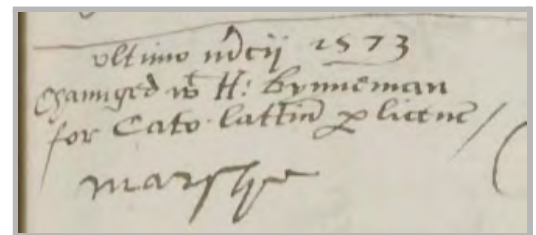 ultimo m̃cij 1573
Chaunged wt H: Bynneman
for Cato lattin̄ p licenc̄
marshe